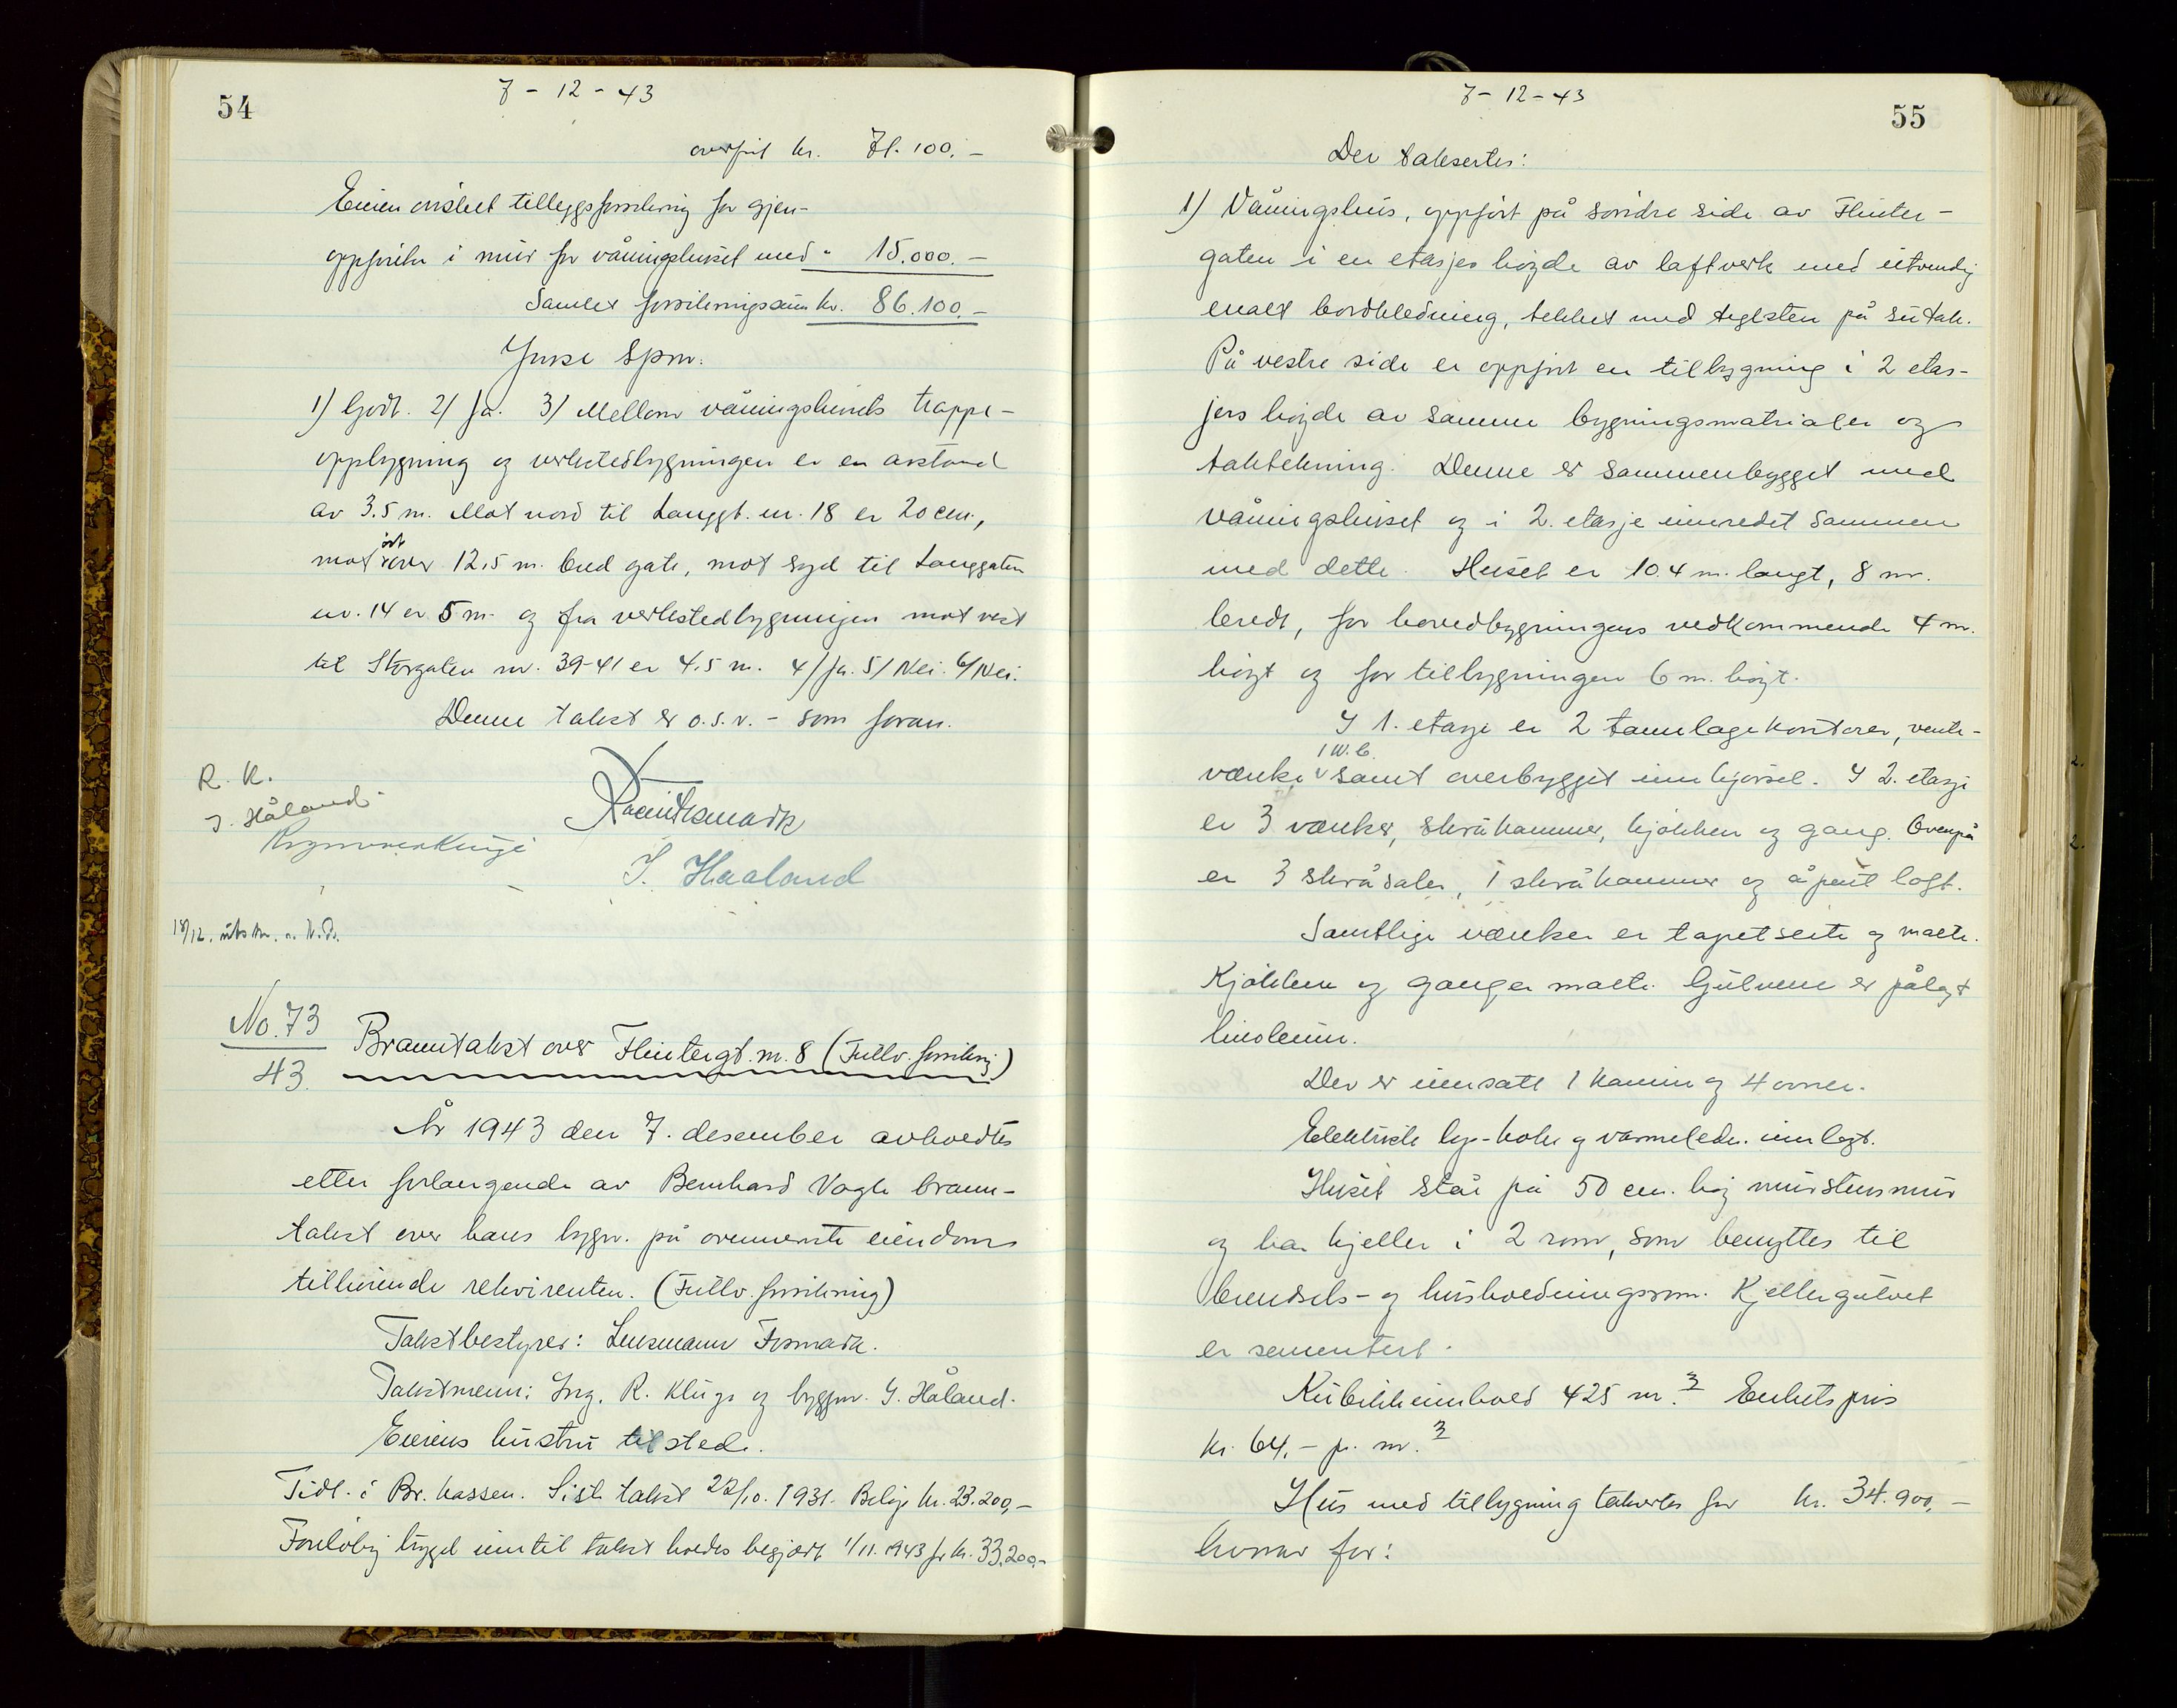 54
7 - 12 - 43
overført kr. 71.100.-
Eieren ønsket tilleggsforsikring for gjen-
oppførelse i mur for våningshuset med " 15.000.-
Samlet forsikringssum kr. 86.100.-
Spm.
1) Godt. 2) Ja. 3) Mellom våningshusets trappe-
oppbygning og verkstedbygningen er en avstand
av 3.5 m. Mot nord til Langgt. nr. 18 er 20 cm.,
øst
mot over 12.5 m. bred gate, mot syd til Langgaten
nr. 14 er 5 m. og fra verkstedbygningen mot vest
til Storgaten nr. 39-41 er 4.5 m. 4) Ja. 5) Nei. 6) Nei.
Denne takst er o.s.v. - som foran.
R. K.
J. Håland
J. Haaland
18/12.
No. 73
43.
Branntakst over Flintergt. nr. 8 (Fullv. forsikring)
År 1943 den 7. desember avholdtes
etter forlangende av Bernhard Vagle brann-
takst over hans bygn. på ovennevnte eiendom
tilhørende rekvirenten. (Fullv. forsikring)
Takstbestyrer: Lensmann Fosmark.
Takstmenn: Ing. R. Kluge og byggm. J. Håland.
Eierens hustru tilstede.
Tidl. i Br. kassen. Siste takst 22/10. 1931. Beløp kr. 23.200,-
Foreløbig trygd inntil takst holdes begjært 1/11. 1943 for kr. 33.200.-
7 - 12 - 43
55
Der taksertes:
1) Våningshus, oppført på søndre side av Flinter-
gaten i en etasjes høyde av laftverk med utvendig
enkelt bordkledning, tekket med teglsten på sutak.
På vestre side er oppført en tilbygning i 2 etas-
jers høyde av samme bygningsmatrialer og
taktekning. Denne er sammenbygget med
våningshuset og i 2. etasje innredet sammen
med dette. Huset er 10.4 m. langt, 8 m.
bredt, for hovedbygningens vedkommende 4 m.
høyt og for tilbygningen 6 m. høyt.
I 1. etasje er 2 tannlagekontorer, vente-
1 W.C.
værelse samt overbygget innkjørsel. I 2. etasje
er 3 værelser, skråkammer, kjøkken og gang. Ovenpå
er 3 skråsaler, 1 skråkammer og åpent loft.
Samtlige værelser er tapetserte og malte.
Kjøkken og ganger malte. Gulvene er pålagt
linoleum.
Der er innsatt 1 kamin og 4 ovner.
Elektrisk lys- koke og varmeledn. innlagt.
Huset står på 50 cm. høy murstensmur
og har kjeller i 2 rom, som benyttes til
brendsels- og husholdningsrom. Kjellergulvet
er sementert.
Kubikkinnhold 425 m.3 Enhetspris
kr. 64.- pr. m.3
Hus med tilbygning takseres for kr. 34.900.-
hvorav for: